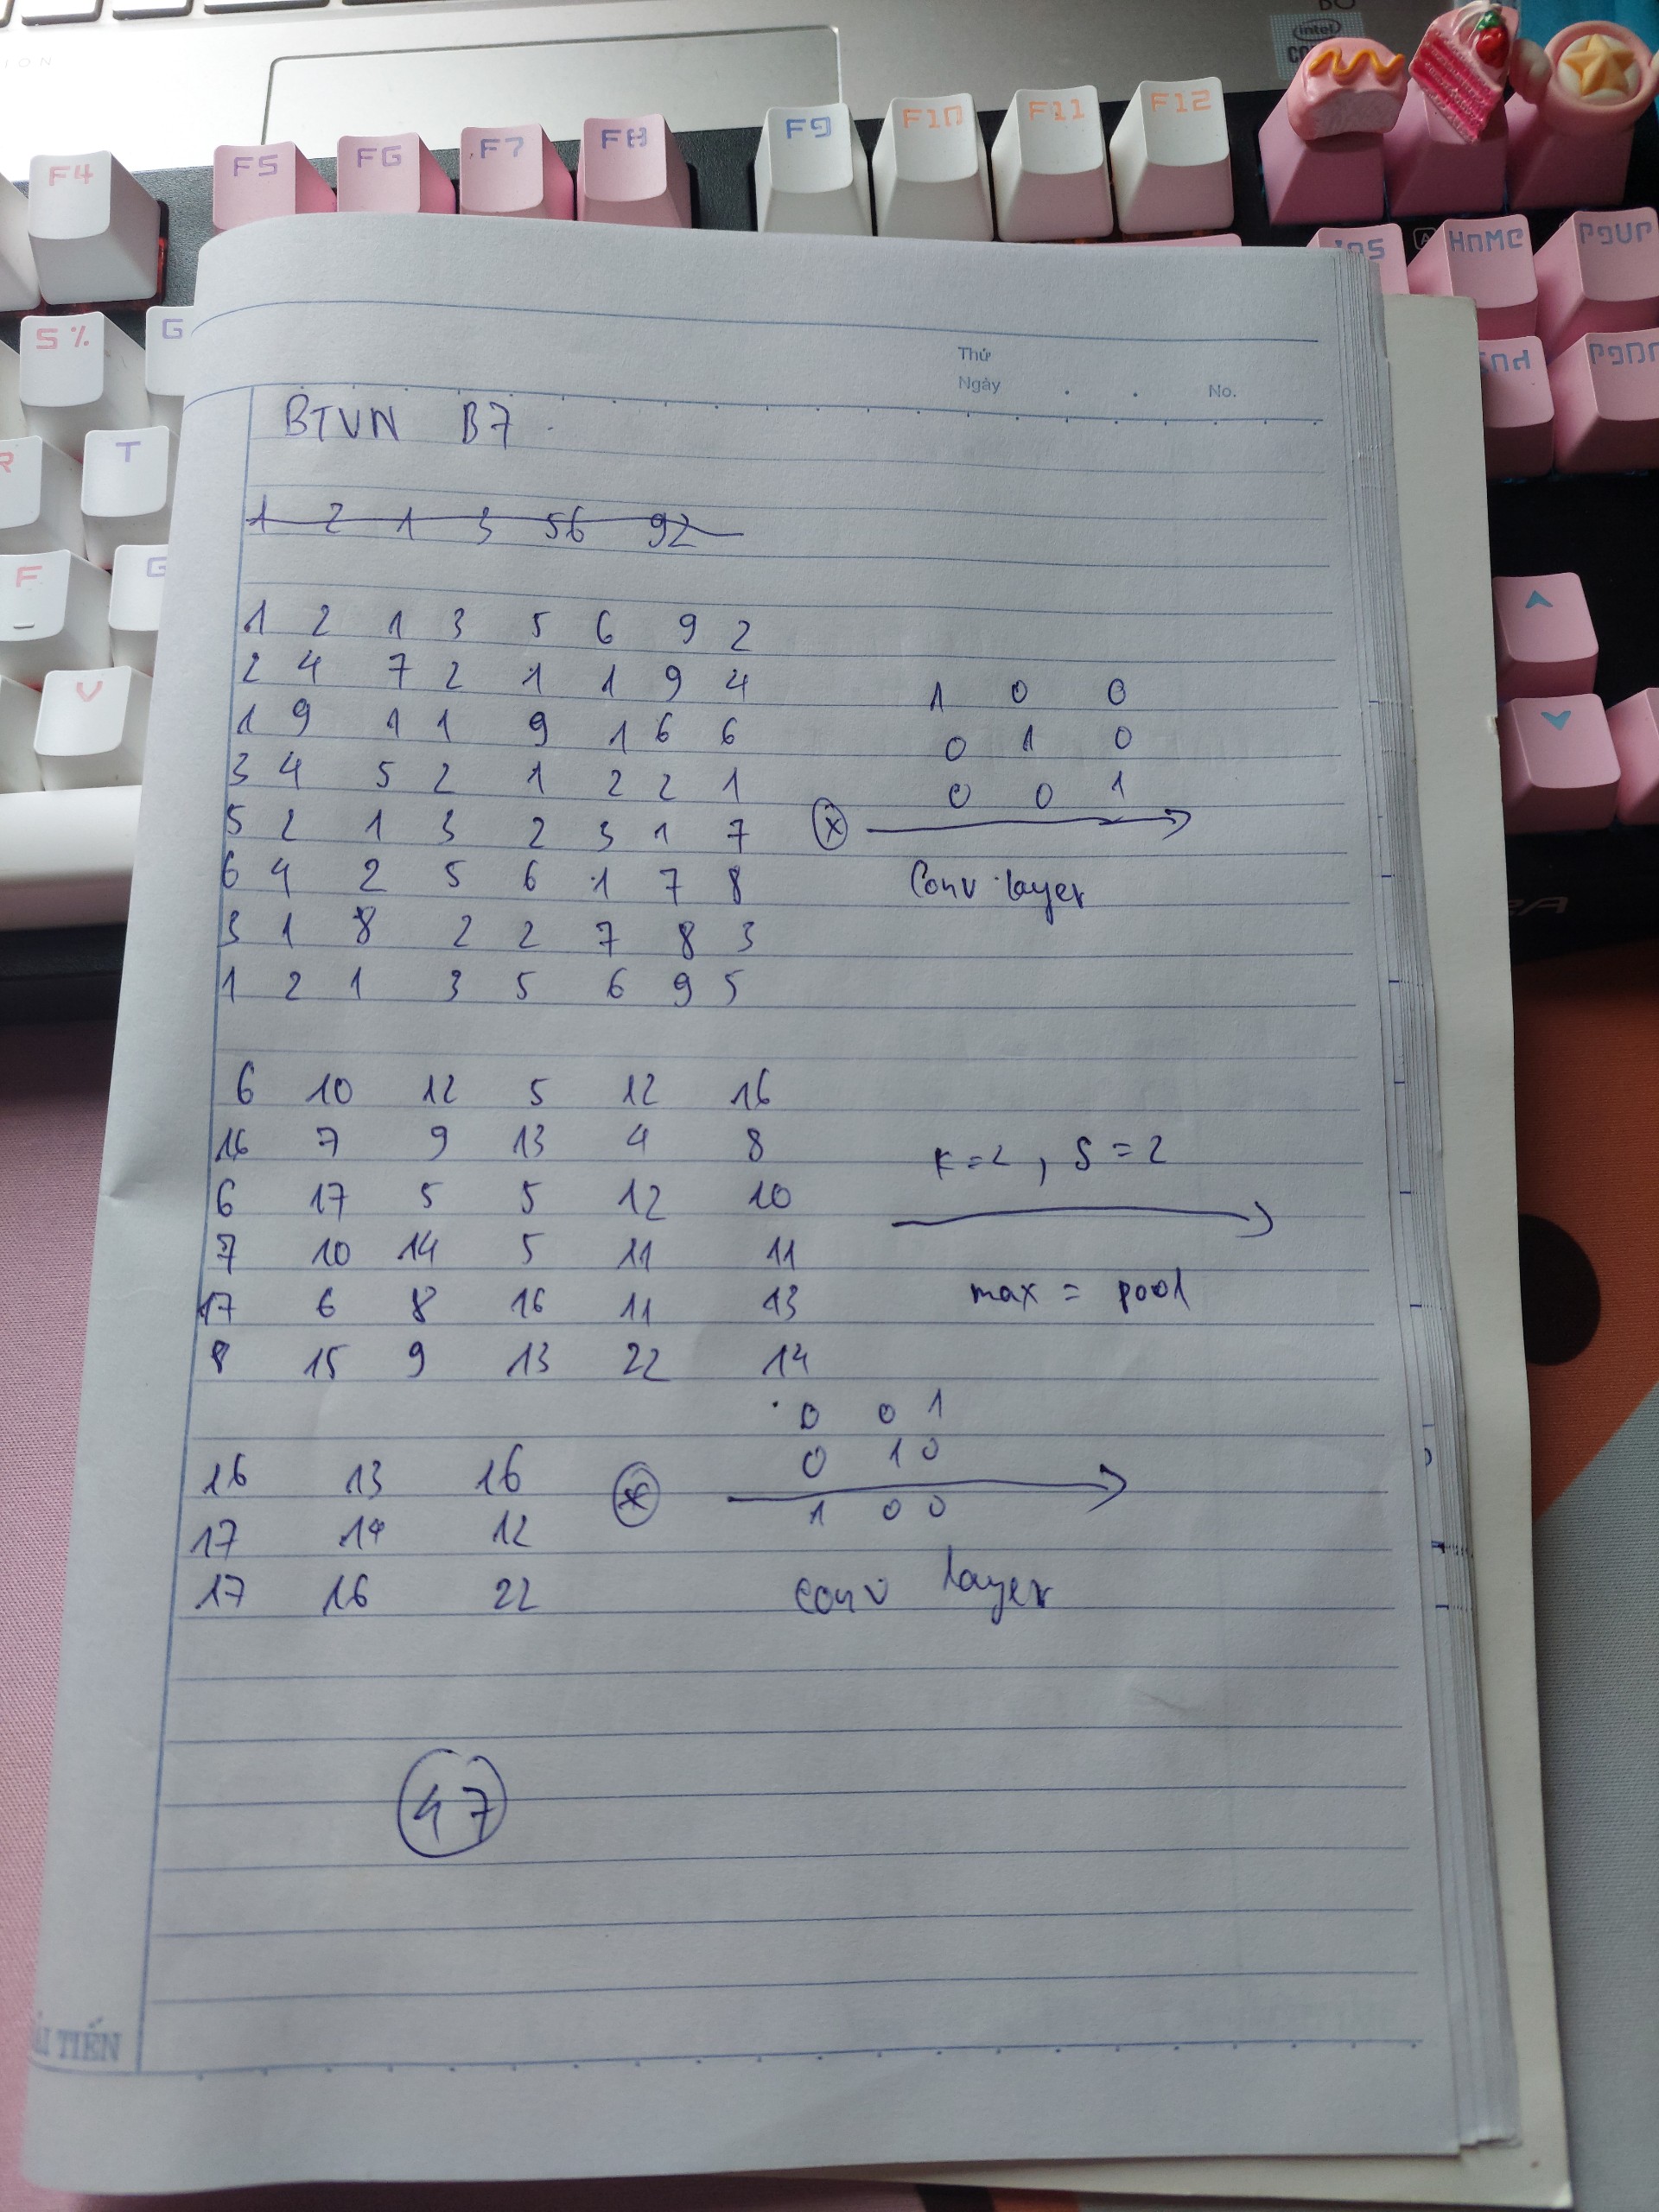 ION
intel
F4
F5
F6
F7
F8
F9
F10
F11
F12
HOME
PGUP
PGDN
5 %
T
R
F
G
V
Thứ
Ngày
No.
BTVN B7
1 2 1 3 56 92
1 2 1 3 5 6 9 2
2 4 7 2 1 1 9 4
1 9 1 1 9 1 6 6
3 4 5 2 1 2 2 1
5 2 1 3 2 3 1 7
6 4 2 5 6 1 7 8
3 1 8 2 2 7 8 3
1 2 1 3 5 6 9 5
1 0 0
0 1 0
0 0 1
x
Conv layer
6 10 12 5 12 16
16 7 9 13 4 8
6 17 5 5 12 10
7 10 14 5 11 11
17 6 8 16 11 13
8 15 9 13 22 14
K=2, S=2
max = pool
16 13 16
17 14 12
17 16 22
0 0 1
0 1 0
1 0 0
conv layer
47
ẢI TIẾN